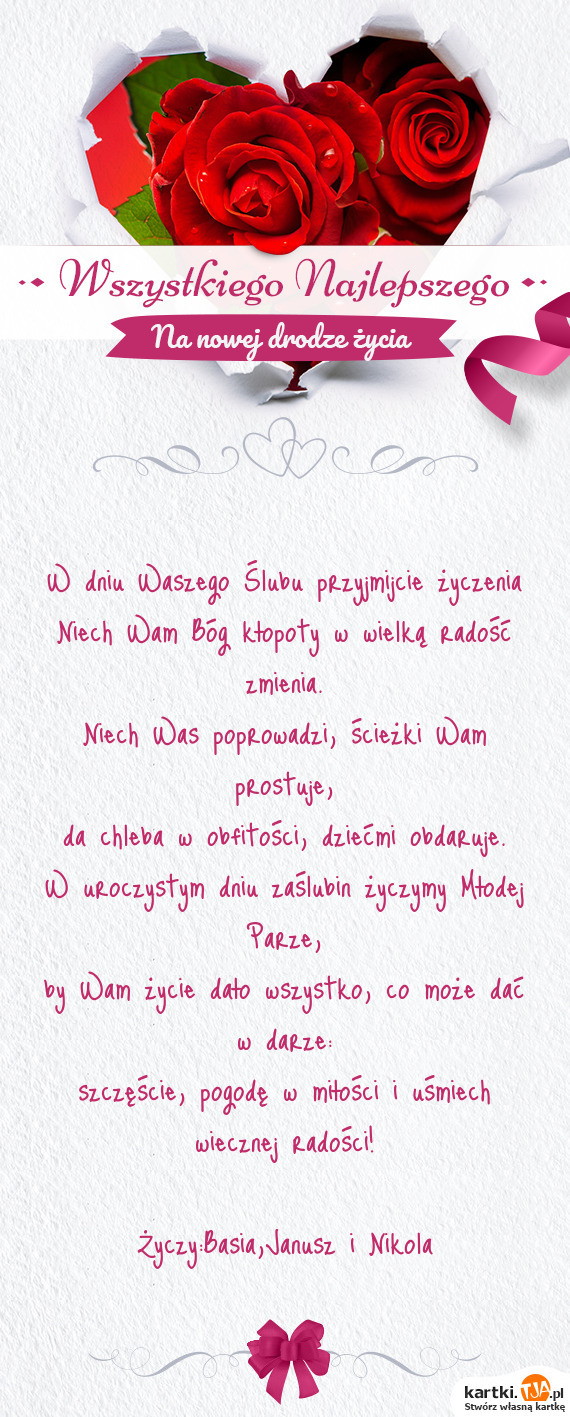 Wszystkiego Najlepszego
Na nowej drodze życia
W dniu Waszego Ślubu przyjmijcie życzenia
Niech Wam Bóg kłopoty w wielką radość
zmienia.
Niech Was poprowadzi, ścieżki Wam
prostuje,
da chleba w obfitości, dziećmi obdaruje.
W uroczystym dniu zaślubin życzymy Młodej
Parze,
by Wam życie dało wszystko, co może dać
w darze:
szczęście, pogodę w miłości i uśmiech
wiecznej radości!
Życzy:Basia,Janusz i Nikola
kartki.TJA.pl
Stwórz własną kartkę